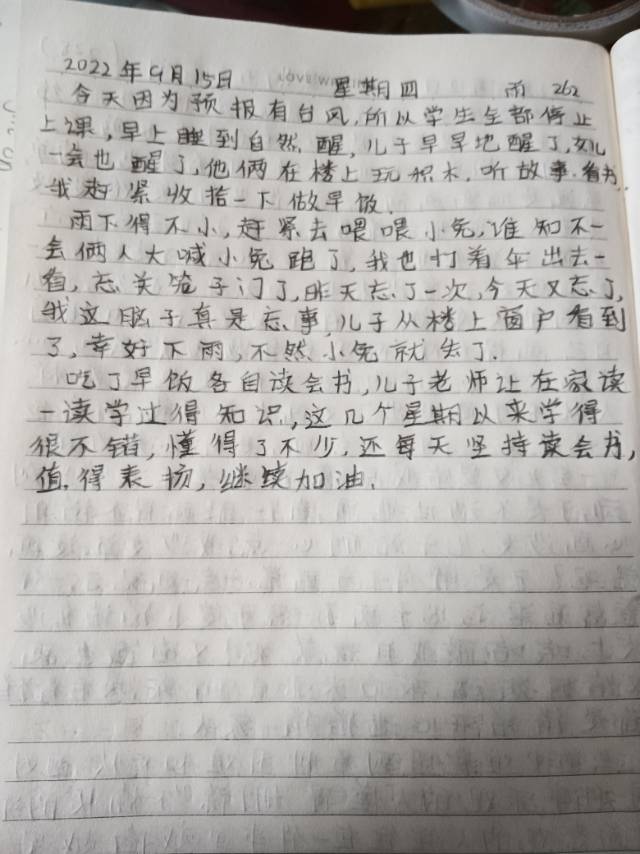 2022年9月15日 星期四 雨 262
今天因为预报有台风,所以学生全部停止
上课,早上睡到自然醒,儿子早早地醒了,女儿
一会也醒了,他俩在楼上玩积木,听故事.看书,
我赶紧收拾一下做早饭.
雨下得不小,赶紧去喂喂小兔,谁知不一
会俩人大喊小兔跑了,我也打着伞出去一
看,忘关笼子门了,昨天忘了一次,今天又忘了,
我这脑子真是忘事,儿子从楼上窗户看到
了,幸好下雨,不然小兔就失了.
吃了早饭各自读会书,儿子老师让在家读
一读学过得知识,这几个星期以来学得
很不错,懂得了不少,还每天坚持读会书,
值得表扬,继续加油.